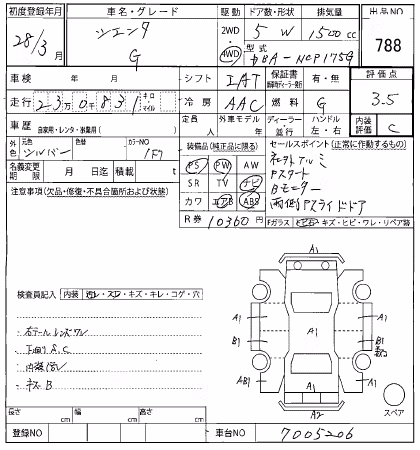 初度登録年月 車名・グレード 駆動 ドア数・形状 排気量 出品NO
28/3月 シエンタ 2WD 5 W 1500cc 788
G 4WD 型式 DBA-NCP175G
車検 年 月 シフト IAT 保証書 有・無 評価点
走行 23万0千831 キロ マイル 冷房 AAC 燃料 G 3.5
車歴 自家用・レンタ・営業用( ) 定員 人 外車モデル 年 ディーラー 並行 ハンドル 左・右 内装評価 C
外色 元色 シルバー 色替 カラーNO 1F7
名義変更期限 月 日迄 積載 t
装備品(純正品に限る)
PS PW AW
SR TV ナビ
カワ エアB ABS
R券 10360円
セールスポイント(正常に作動するもの)
Pスタート
Bモニター
両側Pスライドドア
Fガラス ヒビ・ワレ・リペア跡
注意事項(欠品・修復・不具合箇所および状態)
検査員記入 内装 汚レ・スレ・キズ・キレ・コゲ・穴
右テールレンズワレ
下回りS.C
キズB
A1
A1 A1
B1 A1 B1
AB1 A1
A2
スペア
長さ cm 幅 cm 高さ cm
登録NO 車台NO 7005206